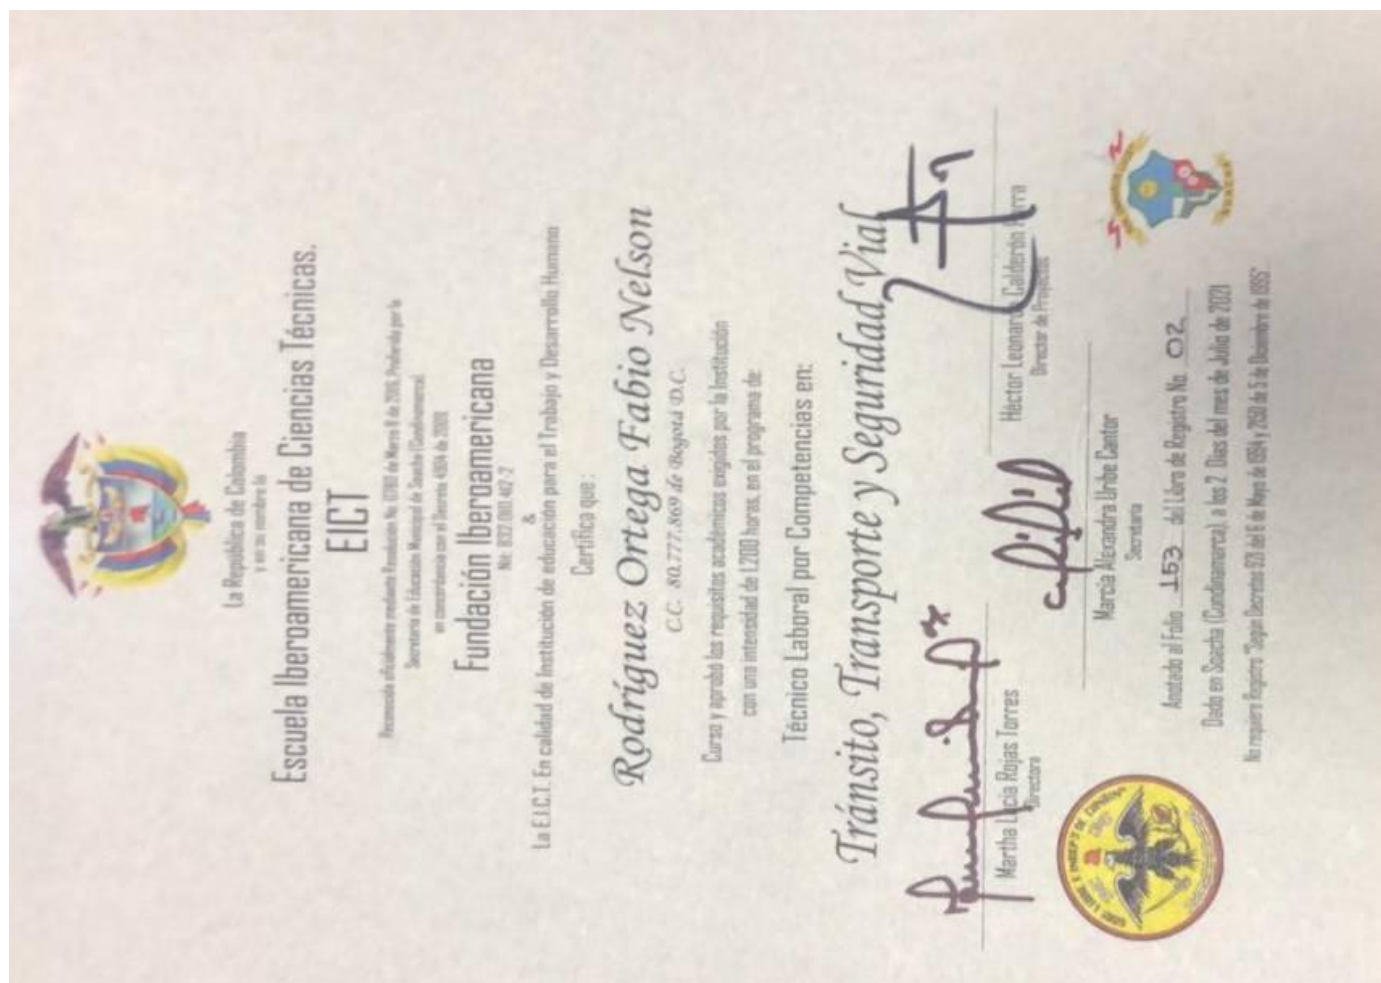 La República de Colombia
y en su nombre la
Escuela Iberoamericana de Ciencias Técnicas.
EICT
Reconocida oficialmente mediante Resolución No. 0780 de Marzo 8 de 2016, Proferida por la
Secretaría de Educación Municipal de Soacha (Cundinamarca)
en concordancia con el Decreto 4904 de 2009
Fundación Iberoamericana
&
La E.I.C.T. En calidad de Institución de educación para el Trabajo y Desarrollo Humano
Certifica que:
Rodríguez Ortega Fabio Nelson
C.C. 80.777.869 de Bogotá D.C.
Curso y aprobó los requisitos académicos exigidos por la Institución
con una intensidad de 1.200 horas, en el programa de:
Técnico Laboral por Competencias en:
Tránsito, Transporte y Seguridad Vial
Martha Lucia Rojas Torres
Directora
Héctor Leonardo Calderón
Director de Proyectos
Marcia Alexandra Uribe Cantor
Secretaria
Anotado al Folio 153 del Libro de Registro No 02
Dado en Soacha (Cundinamarca) a los 2 Días del mes de Julio de 2021
No requiere Registro "Según Decretos 0.921 del 6 de Mayo de 1994 y 2150 de 5 de Diciembre de 1995"
SOACHA